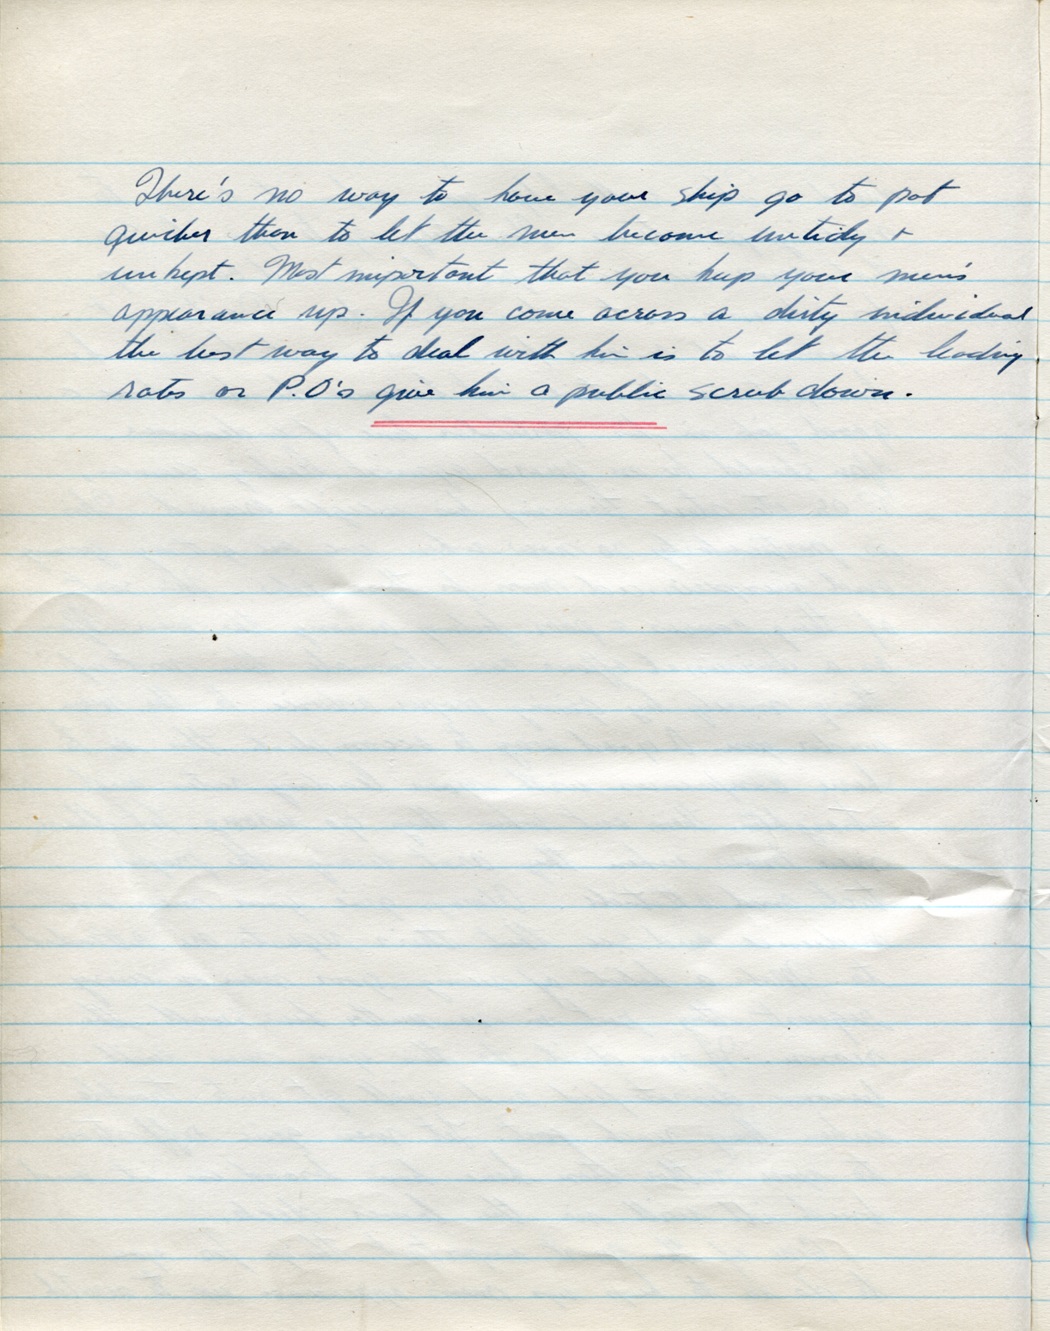 There's no way to have your ship go to pot
quicker than to let the men become untidy +
unkept. Most important that you keep your men's
appearance up. If you come across a dirty individual
the best way to deal with him is to let the leading
rates or P.O's give him a public scrub down.